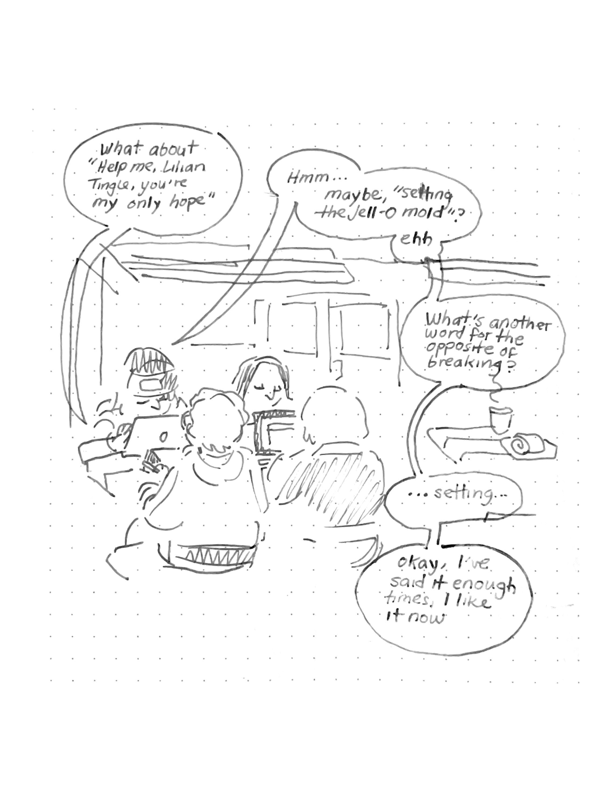 What about
"Help me, Lilian
Tingle, you're
my only hope"
Hmm...
maybe, "setting
the Jell-O mold"?
ehh
What's another
word for the
opposite of
breaking?
...setting...
okay, I've
said it enough
times, I like
it now